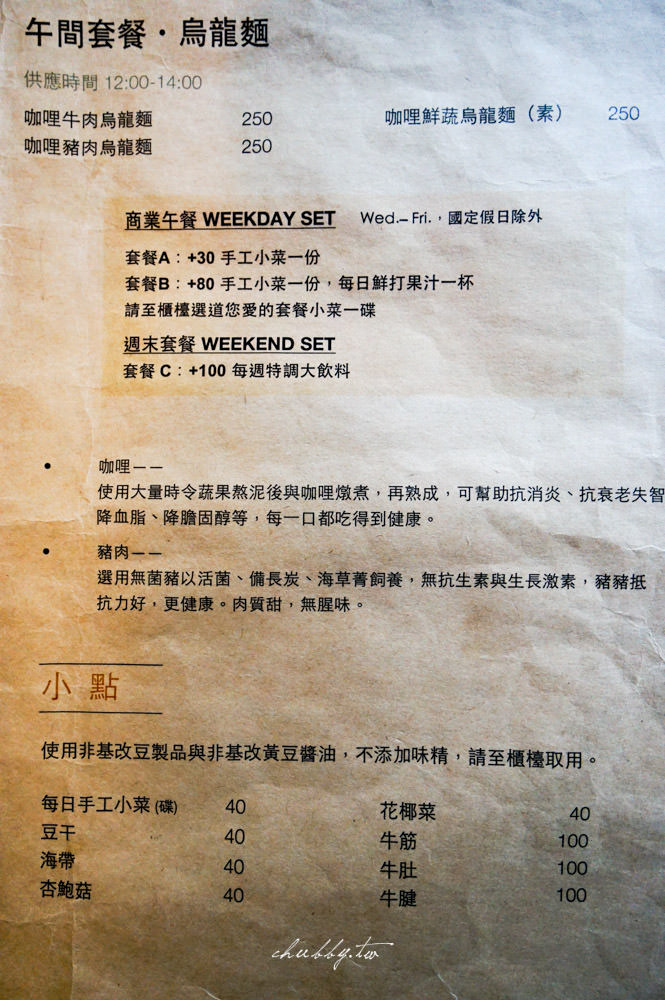 午間套餐・烏龍麵
供應時間 12:00-14:00
咖哩牛肉烏龍麵 250
咖哩豬肉烏龍麵 250
咖哩鮮蔬烏龍麵（素） 250
商業午餐 WEEKDAY SET Wed.–Fri.，國定假日除外
套餐A：+30 手工小菜一份
套餐B：+80 手工小菜一份，每日鮮打果汁一杯
請至櫃檯選道您愛的套餐小菜一碟
週末套餐 WEEKEND SET
套餐 C：+100 每週特調大飲料
• 咖哩——
使用大量時令蔬果熬泥後與咖哩燉煮，再熟成，可幫助抗消炎、抗衰老失智
降血脂、降膽固醇等，每一口都吃得到健康。
• 豬肉——
選用無菌豬以活菌、備長炭、海草菁飼養，無抗生素與生長激素，豬豬抵
抗力好，更健康。肉質甜，無腥味。
小 點
使用非基改豆製品與非基改黃豆醬油，不添加味精，請至櫃檯取用。
每日手工小菜 (碟) 40
豆干 40
海帶 40
杏鮑菇 40
花椰菜 40
牛筋 100
牛肚 100
牛腱 100
chubby.tw